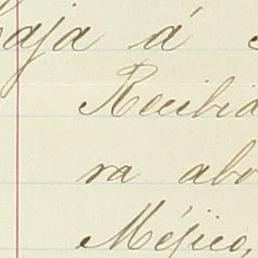 aja á
Recibid
ra abo
Méjico,